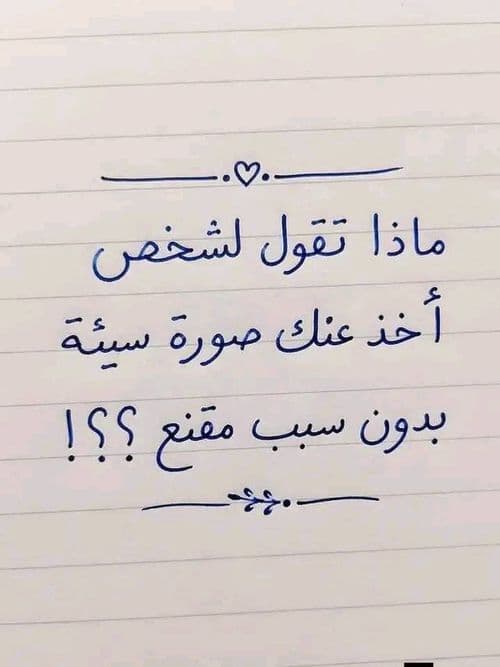 ماذا تقول لشخص
أخذ عنك صورة سيئة
بدون سبب مقنع ؟؟؟!